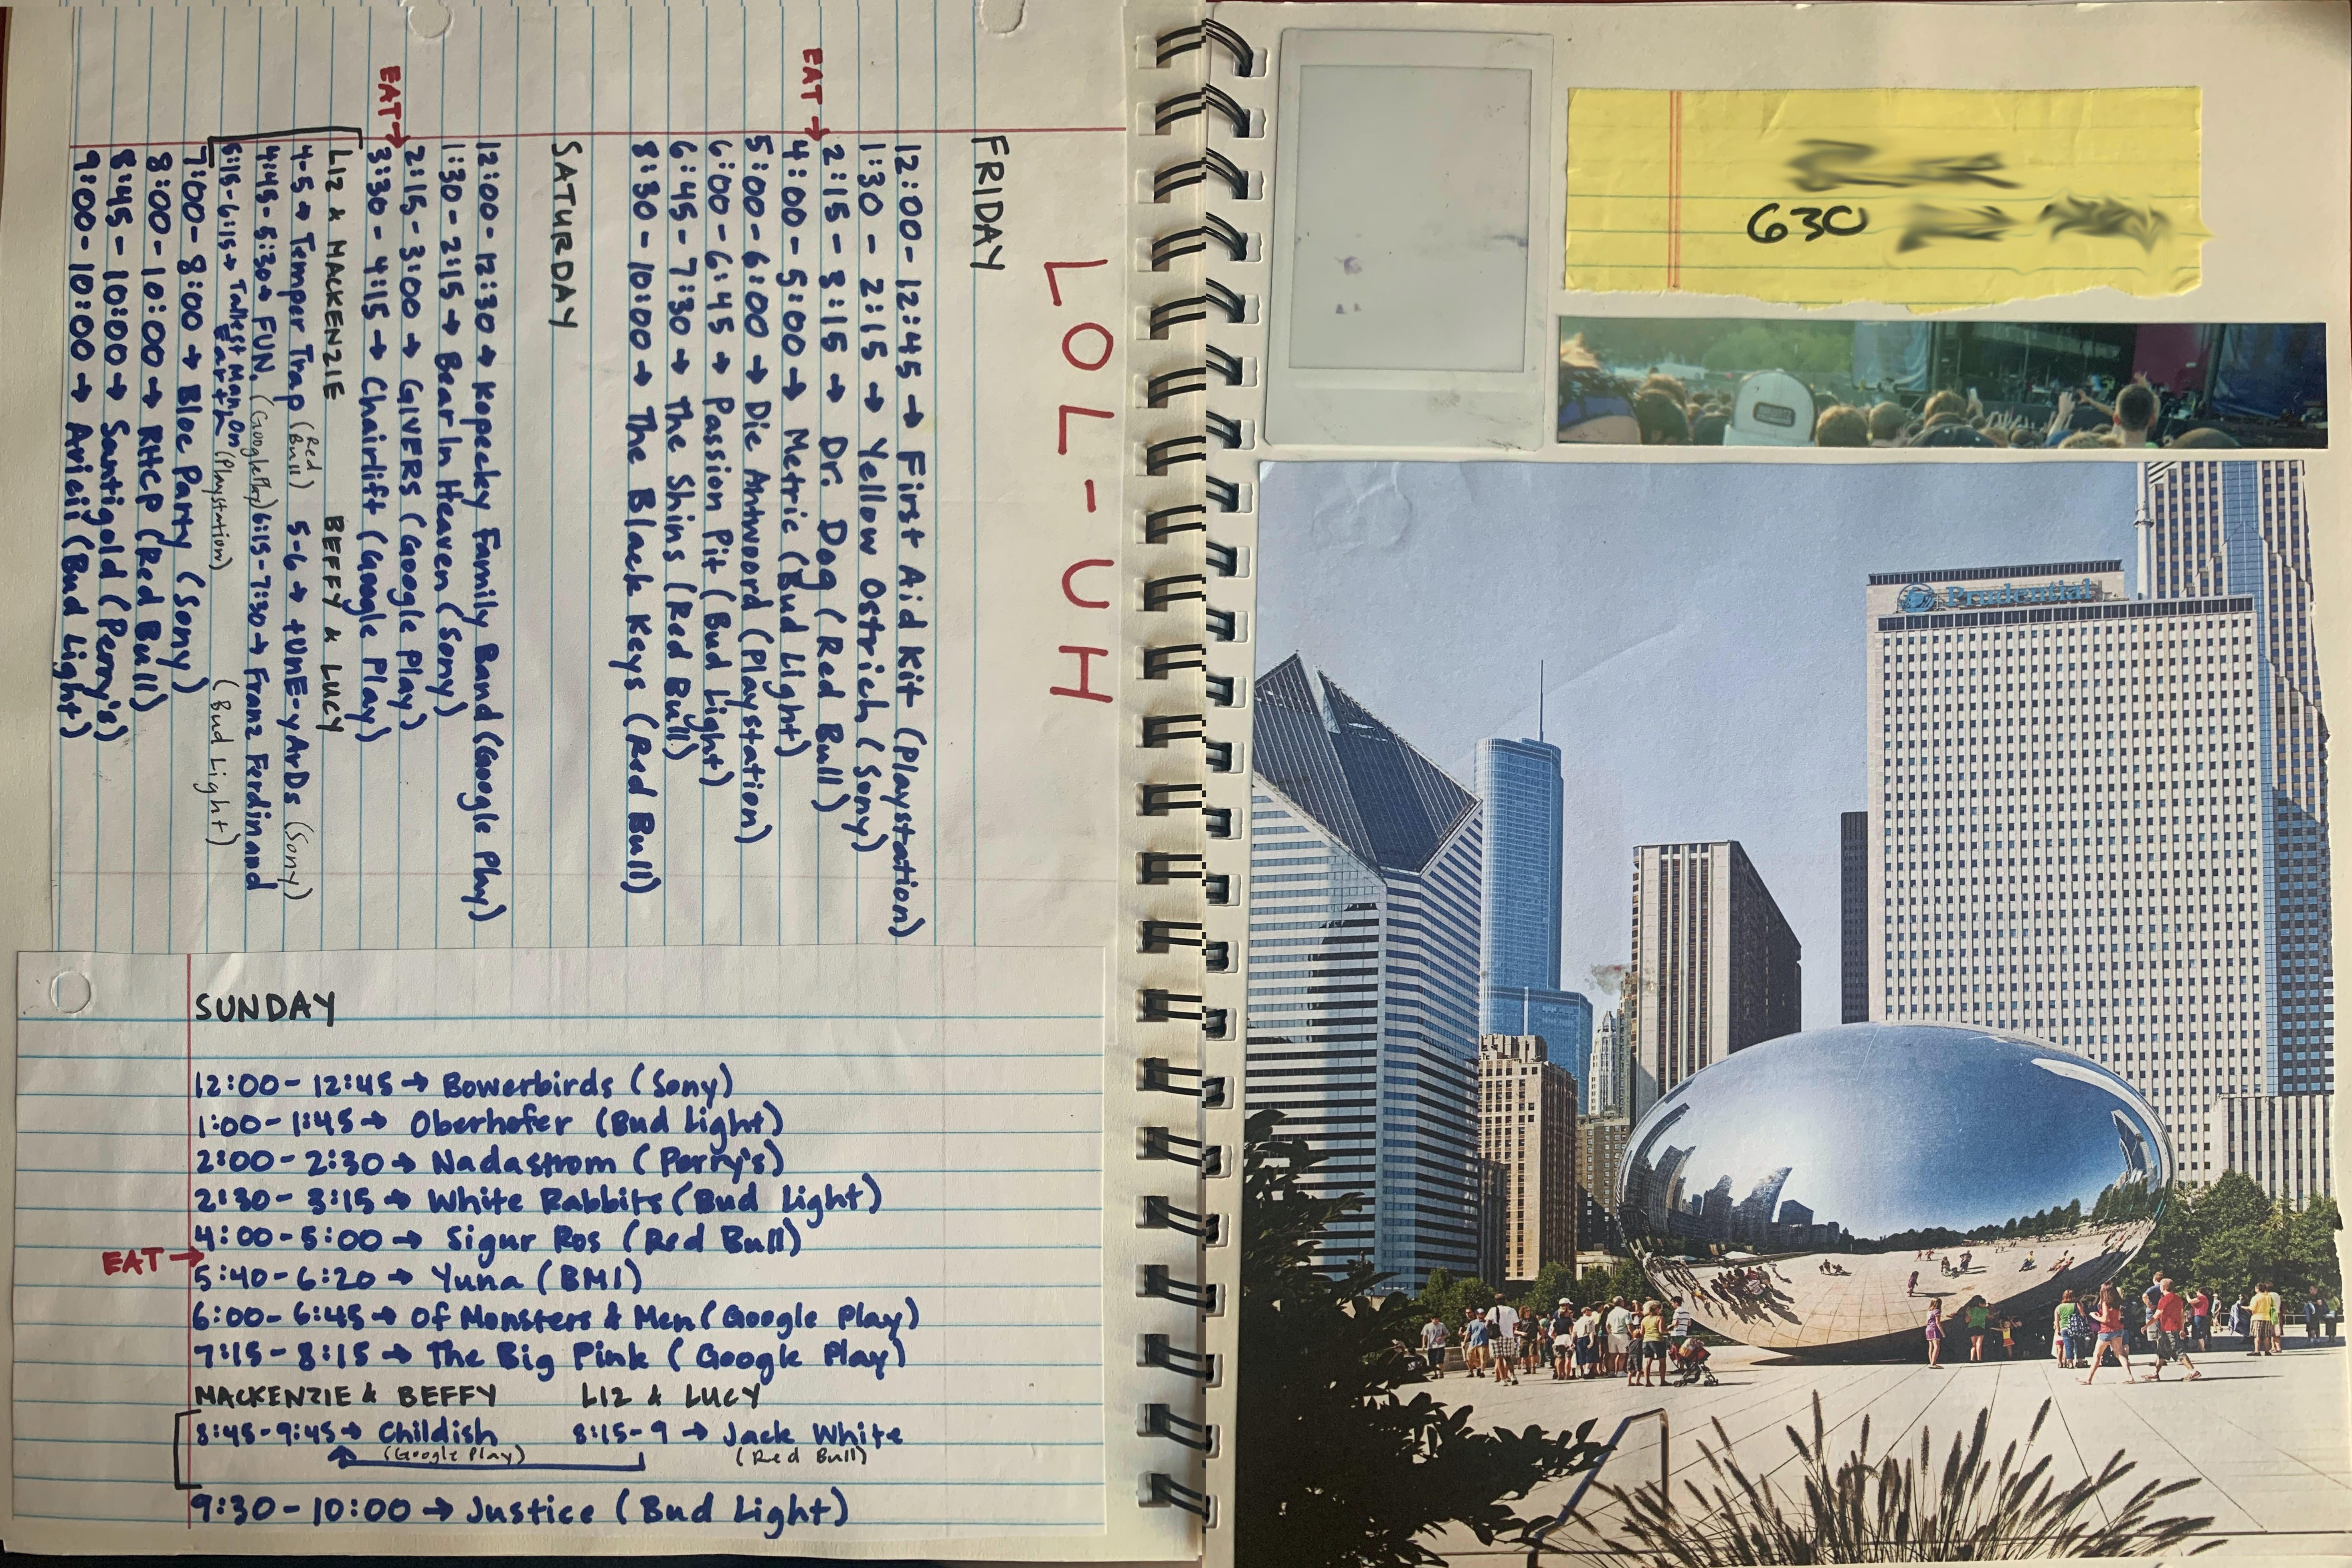 LOL-UH
FRIDAY
12:00-12:45 → First Aid Kit (Playstation)
1:30 - 2:15 → Yellow Ostrich (Sony)
2:15 - 3:15 → Dr. Dog (Red Bull)
EAT →
4:00 - 5:00 → Metric (Bud Light)
5:00-6:00 → Die Antwoord (Playstation)
6:00-6:45 → Passion Pit (Bud Light)
6:45-7:30 → The Shins (Red Bull)
8:30-10:00 → The Black Keys (Red Bull)
SATURDAY
12:00-12:30 → Kopecky Family Band (Google Play)
1:30-2:15 → Bear In Heaven (Sony)
2:15-3:00 → GIVERS (Google Play)
EAT →
3:30-4:15 → Chairlift (Google Play)
LIZ & MACKENZIE BEFFY & LUCY
4-5 → Temper Trap (Red Bull) 5-6 → tUnE-yArDs (Sony)
4:45-5:30 → FUN. (Google Play) 6:15-7:30 → Franz Ferdinand
(Bud Light)
5:15-6:15 → Tallest Man On Earth (Playstation)
7:00-8:00 → Bloc Party (Sony)
8:00-10:00 → RHCP (Red Bull)
8:45-10:00 → Santigold (Perry's)
9:00-10:00 → Avicii (Bud Light)
SUNDAY
12:00-12:45 → Bowerbirds (Sony)
1:00-1:45 → Oberhofer (Bud Light)
2:00-2:30 → Nadastrom (Perry's)
2:30-3:15 → White Rabbits (Bud Light)
4:00-5:00 → Sigur Ros (Red Bull)
EAT →
5:40-6:20 → Yuna (BMI)
6:00-6:45 → Of Monsters & Men (Google Play)
7:15-8:15 → The Big Pink (Google Play)
MACKENZIE & BEFFY LIZ & LUCY
8:45-9:45 → Childish 8:15-9 → Jack White
(Google Play) (Red Bull)
9:30-10:00 → Justice (Bud Light)
630
Prudential